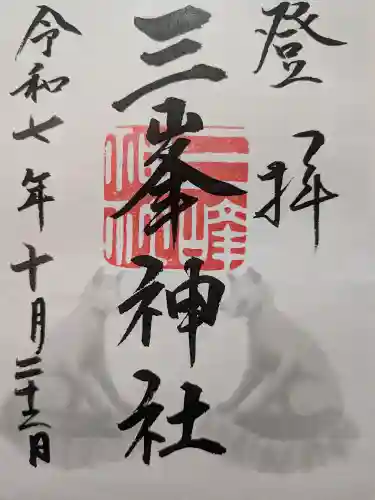 登拝
三峯神社
令和七年十月二十日